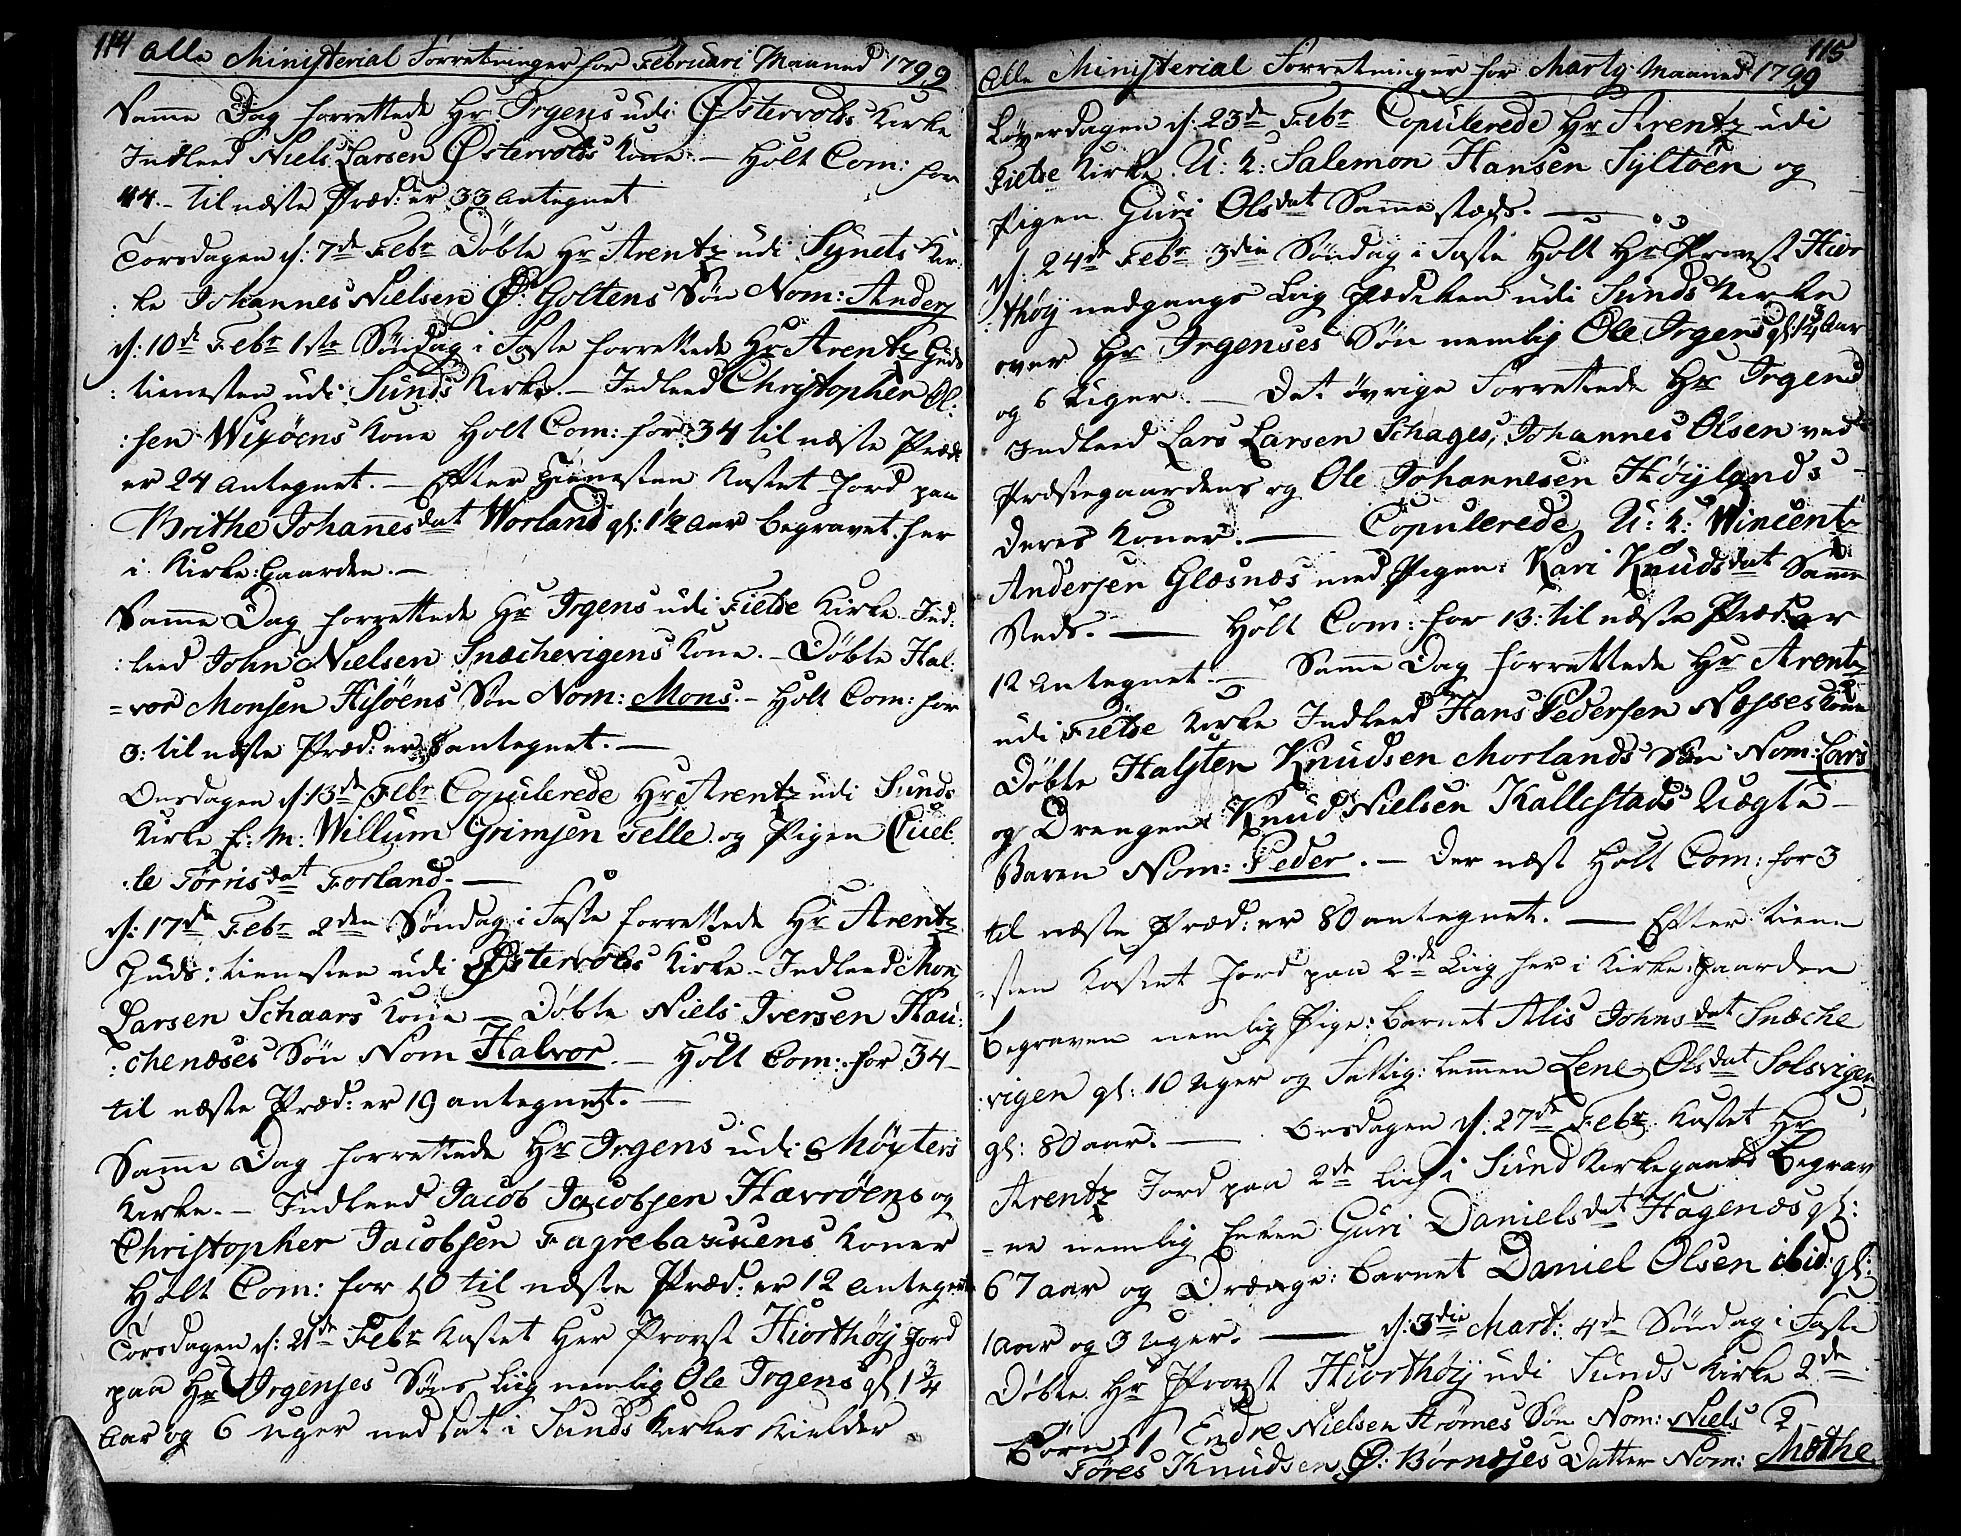 114 Alle Ministerial Forretninger for Februari Maaned 1799
Samme Dag forrettede Hr Irgens udi Østervolds Kirke
Indleed Niels Larsen Østervolds Kone. — Holt Com: for
44. – til næste Præd: er 33 antegnet
Torsdagen d: 7de Febr Døbte Hr Arentz udi Sygnets Kir-
:ke Johannes Nielsen Ø: Goltens Søn Nom: Anders
d: 10de Febr 1ste Søndag i Faste forrettede Hr Arentz Guds
:tienesten udi Sunds Kirke. — Indleed Christopher Ol:
:sen Wixøens Kone Holt Com: for 34 til næste Præd:
er 24 antegnet. — Efter Tienesten Kastet Jord paa
Brithe Johannesdat Worland gl: 1½ Aar begravet her
i Kirke:Gaarden. —
Samme Dag forrettede Hr Irgens udi Fielde Kirke Ind:
:leed John Nielsen Snechevigens Kone. — Døbte Hal:
=vor Monsen Hisøens Søn Nom: Mons. — Holt Com: for
3: til næste Præd: er 8 antegnet. —
Onsdagen d: 13de Febr Copulerede Hr Arentz udi Sunds
Kirke E: M: Willum Grimsen Telle og Pigen Cuel:
:le Tørrisdat Forland. —
d: 17de Febr 2den Søndag i Faste forrettede Hr Arentz
Guds:tienesten udi Østervolds Kirke – Indleed Mons
Larsen Schaars Kone — Døbte Niels Iversen Hau:
:chenæses Søn Nom Halvor. — Holt Com: for 34 –
til næste Præd: er 19 antegnet. —
Samme Dag forrettede Hr Irgens udi Møgsters
Kirke. — Indleed Jacob Jacobsen Hævrøens og
Christopher Jacobsen Fagrebackens Koner
Holt Com: for 10 til næste Præd: er 12 antegnet
Torsdagen d: 21de Febr Kastet Her Provst Hiorthøy Jord
paa Hr Irgenses Søns Liig nemlig Ole Irgens gl: 1¾
Aar og 6 Uger nedsat i Sunds Kirkes Kielder
Alle Ministerial Forretninger for Marty Maaned 1799 115
Løverdagen d: 23de Febr Copulerede Hr Arentz udi
Fielde Kirke U: K: Salemon Hansen Syltøen og
Pigen Guri Olsdat Sammestæds. —
d: 24de Febr 3die Søndag i Faste Holt Hr Provst Hior
:thøy nedgangs Liig Prædiken udi Sunds Kirke
over Hr Irgenses Søn nemlig Ole Irgens gl: 1¾ Aar
og 6 Uger. — Det øvrige Forrettede Hr Irgens
Indleed Lars Larsen Schages, Johannes Olsen ved
Præstegaardens og Ole Johannesen Høylands
Deres Koner. — Copulerede U: K: Wincent
Andersen Glæsnæs med Pigen: Kari Knudsdat Samme
Steds. — Holt Com: for 13: til næste Præd: er
12 antegnet. — Samme Dag forrettede Hr Arentz
udi Fielde Kirke Indleed Hans Pedersen Næsses Kone
Døbte Halsten Knudsen Morlands Søn Nom: Lars
og Drengen Knud Nielsen Kallestads Uægte
Baren Nom: Peder. — Der næst Holt Com: for 3
til næste Præd: er 80 antegnet. — Efter tiene
:sten Kastet Jord paa 2de Liig her i Kirke:gaarden
begraven nemlig Pige:barnet Alis Johnsdat Snæche
:vigen gl: 10 Uger og Fattig:lemmen Lene Olsdat Solsvigen
gl: 80 aar. — Onsdagen d: 27de Febr Kastet Hr
Arentz Jord paa 2de Liig i Sund Kirkegaard begrav
=ne nemlig Enken Guri Danielsdat Hagenæs gl:
67 aar og Drænge:barnet Daniel Olsen ibid: gl:
1 Aar og 3 Uger. — d: 3die Mart: 4de Søndag i Faste
Døbte Hr Provst Hiorthøy udi Sunds Kirke 2de
Børn 1 Endre Nielsen Strømes Søn Nom: Niels 2
Tøres Knudsen Ø: Børnæses Datter Nom: Mæthe